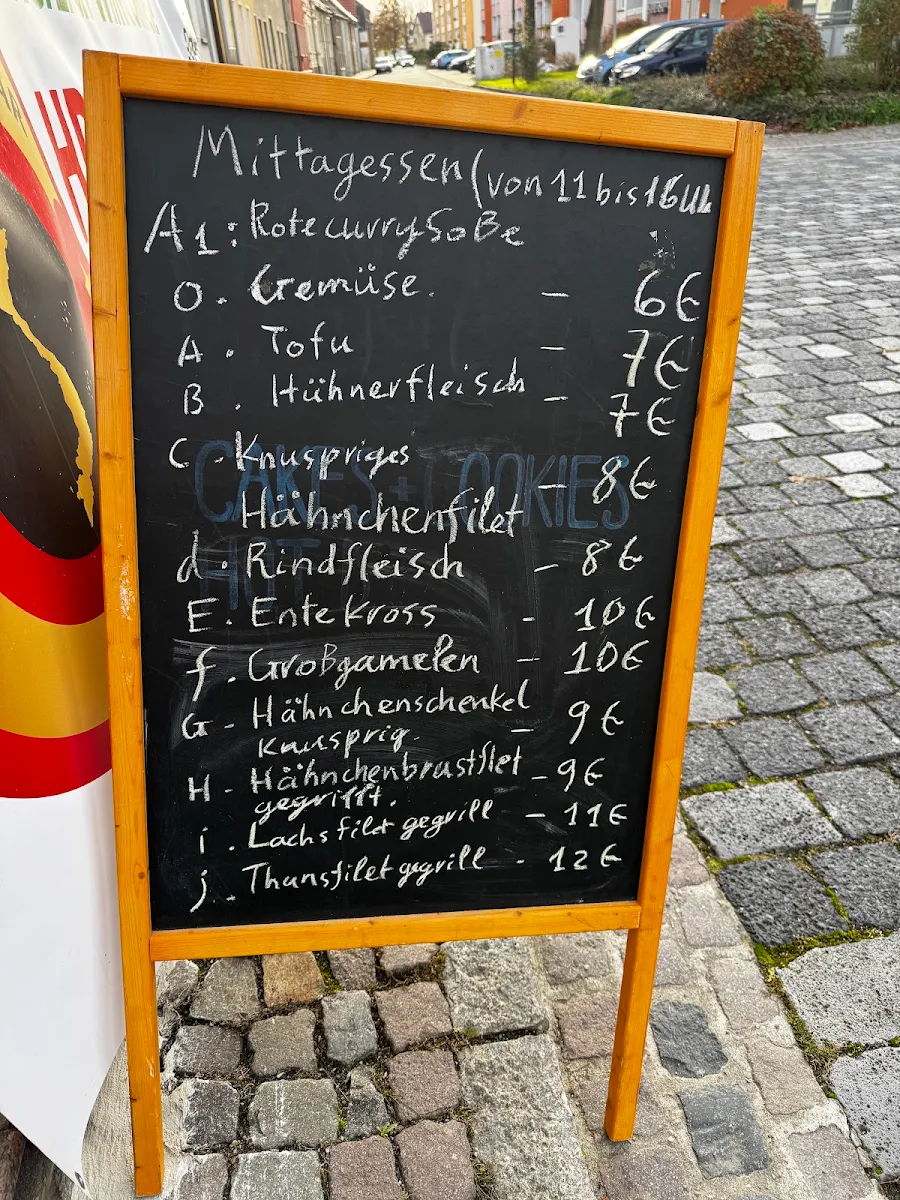 Mittagessen (von 11 bis 16 Uh
A1: Rote curry SoBe
O. Gemüse. - 6€
A. Tofu - 7€
B. Hühnerfleisch - 7€
C. Knuspriges
Hähnchenfilet - 8€
d. Rindfleisch - 8€
E. Ente Kross - 10€
f. Großgarnelen - 10€
G - Hähnchenschenkel
knusprig. - 9€
H - Hähnchenbrustfilet - 9€
gegrifft.
i. Lachsfilet gegrill - 11€
j. Thunsfilet gegrill - 12€
CAKES + COOKIES
HOT